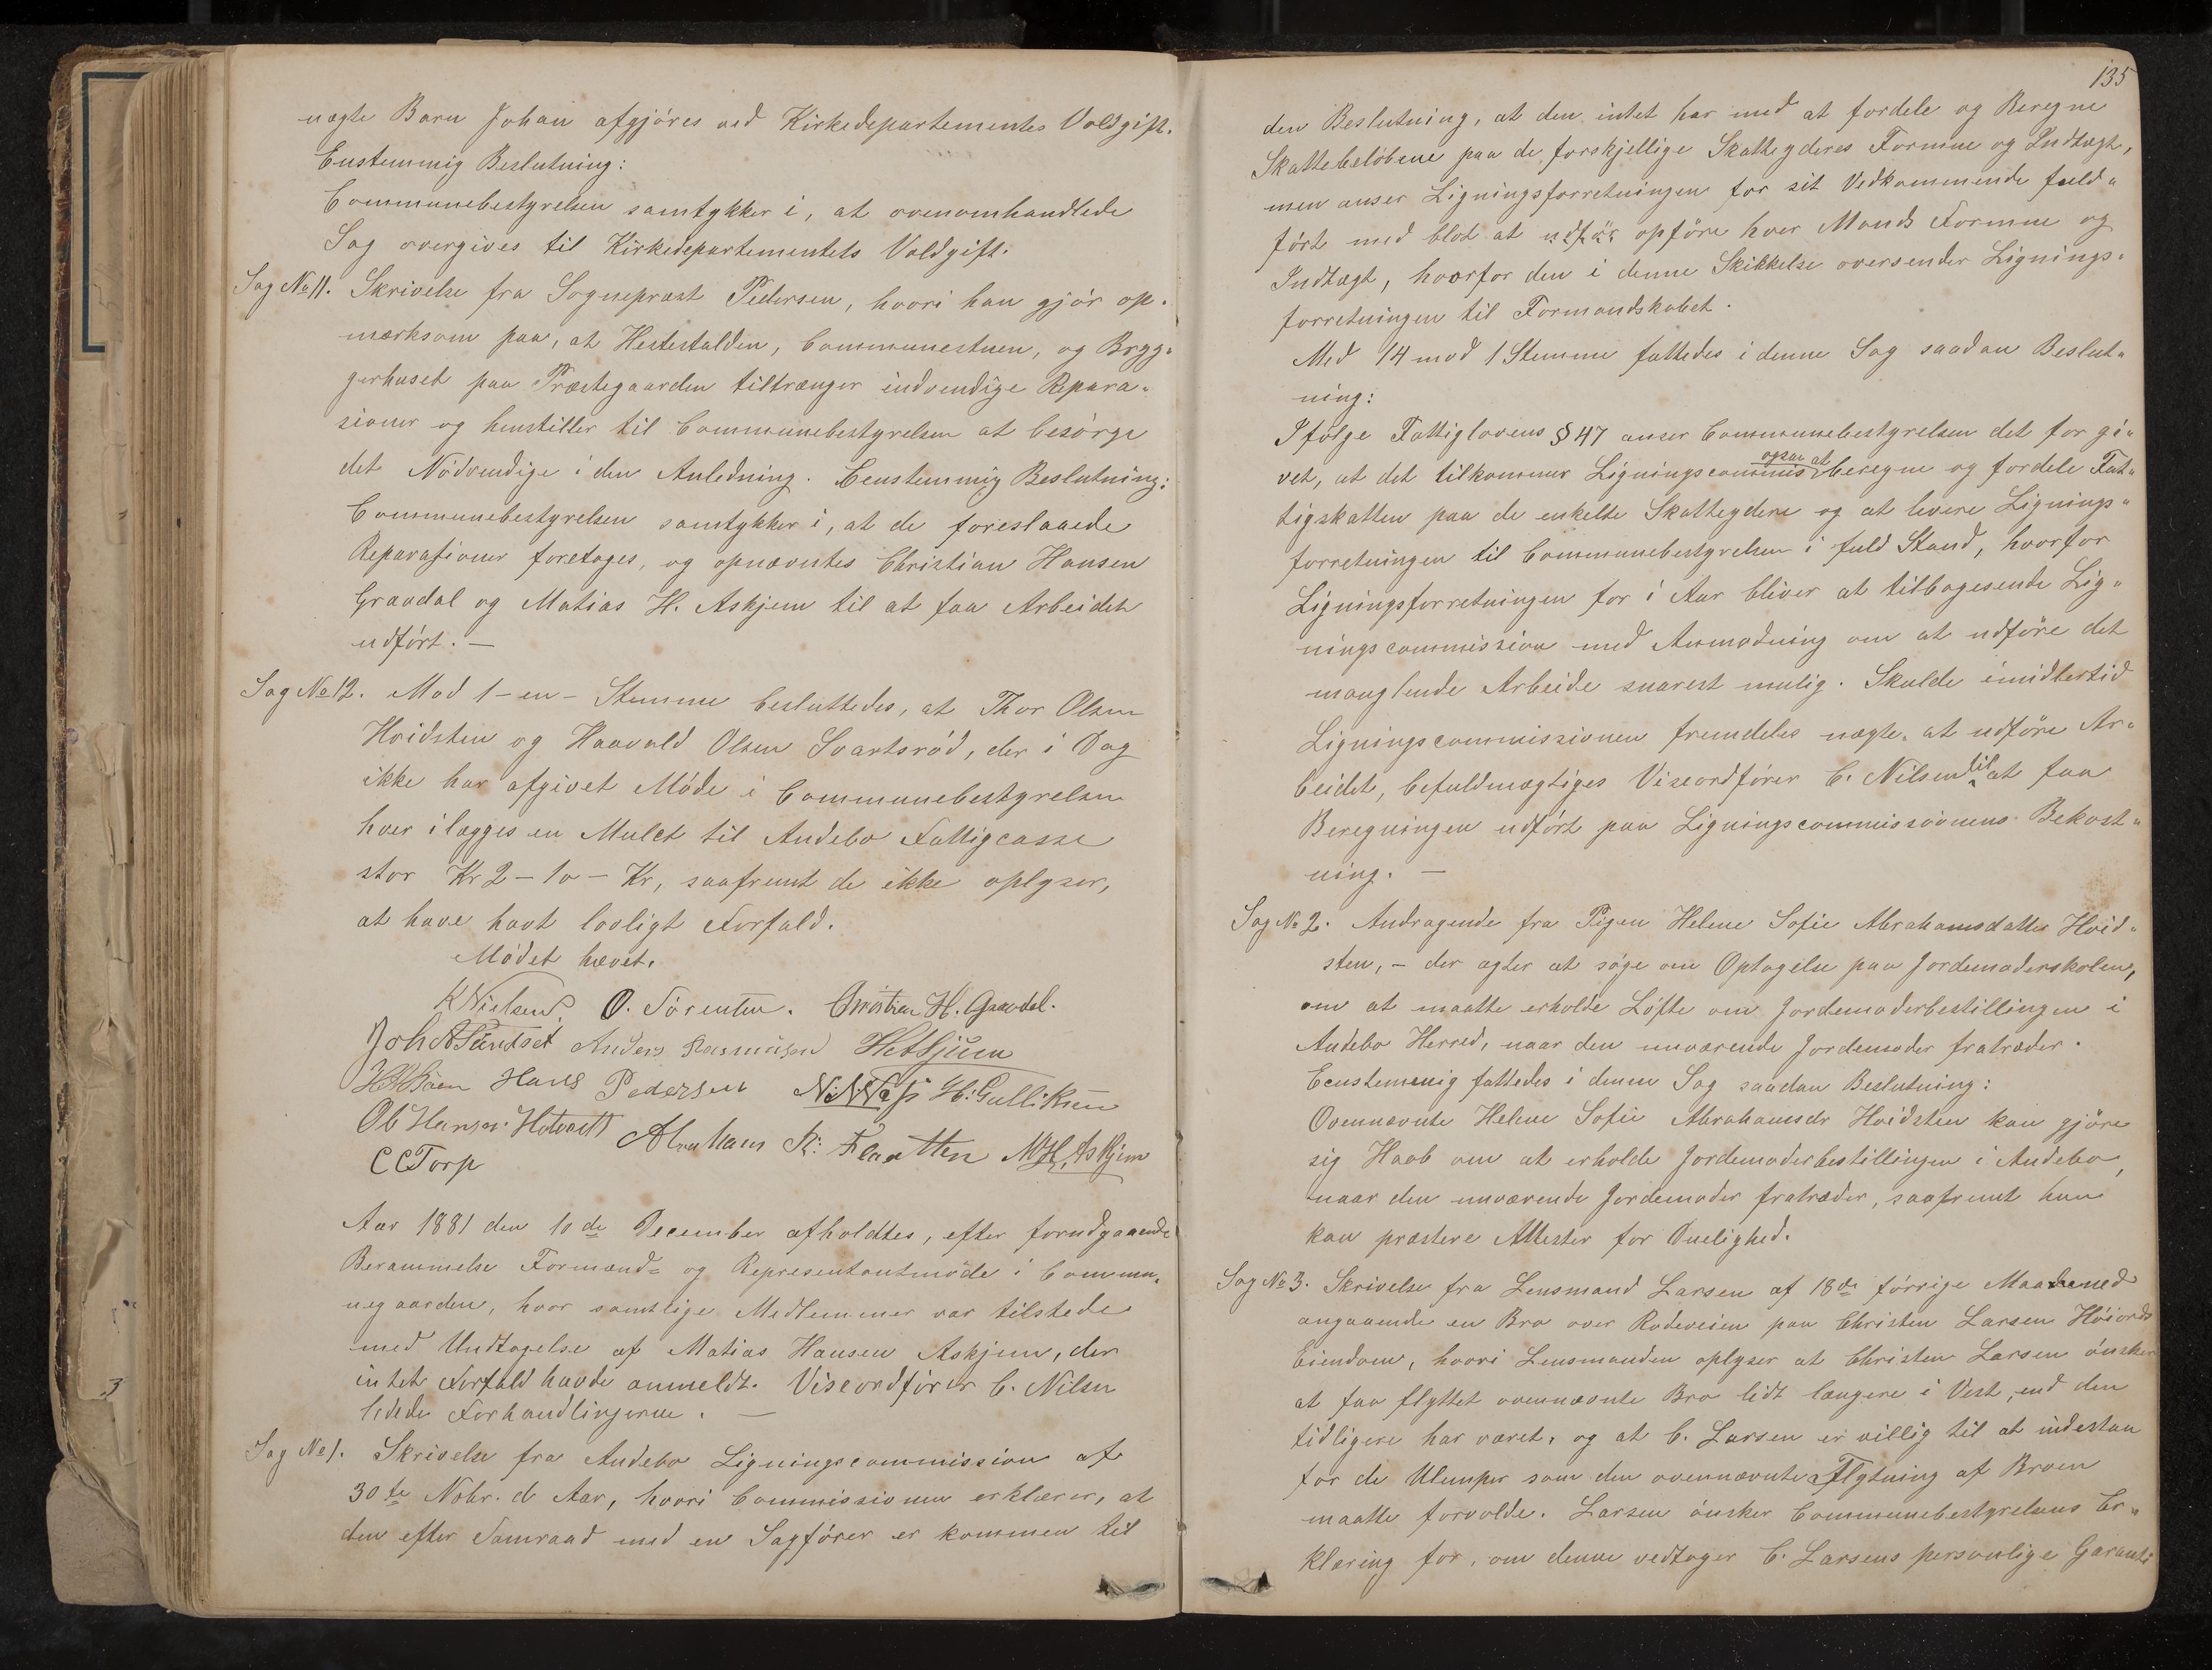 nægte Barn Johan afgjøres ved Kirkedepartementes Voldgift.
Eenstemmig Beslutning:
Communebestyrelsen samtykker i, at ovenomhandlede
Sag overgives til Kirkedepartementets Voldgift.
Sag No 11. Skrivelse fra Sogneprest Pedersen, hvori han gjør op-
mærksom paa, at Hestestalden, Communestuen, og Bryg-
gerhuset paa Præstegaarden tiltrænger indvendige Repara-
sioner og henstiller til Communebestyrelsen at besørge
det Nødvendige i den Anledning. Eenstemmig Beslutning:
Communebestyrelsen samtykker i, at de foreslaaede
Reparasioner foretages, og opnævntes Christian Hansen
Gravdal og Matias H. Askjem til at faa Arbeidet
udført. —
Sag No 12. Mod 1 - en - Stemme besluttedes, at Thor Olsen
Hvidsten og Haavald Olsen Svartsrød, der i Dag
ikke har afgivet Møde i Communebestyrelsen
hver ilægges en Mulct til Andebo Fattigcasse
stor Kr 2 - to - Kr, saafremt de ikke oplyser,
at have havt lovligt Forfald.
Mødet hævet.
K Nielsen. O. Sørensen. Christian H. Gravdal.
Joh A Sundset Anders Rasmussen H Askjem
Hans Pedersen N. N. H. Gulliksen
Ol Hansen Hotvedt Abraham K: Flaatten M H, Askjem
C C Torp
Aar 1881 den 10de December afholdtes, efter forudgaaende
Berammelse Formænd- og Representantmøde i Commu-
negaarden, hvor samtlige Medlemmer var tilstede
med Undtagelse af Matias Hansen Askjem, der
intet Forfald havde anmeldt. Viseordfører C. Nilsen
ledede Forhandlingerne. —
Sag No 1. Skrivelse fra Andebo Ligningscommission af
30te Nobr. d Aar, hvori Commissionen erklærer, at
den efter Samraad med en Sagfører er kommen til
135
den Beslutning, at den intet har med at fordele og Beregne
Skattebeløbene paa de forskjellige Skatteyderes Formue og Indtægt,
men anser Ligningsforretningen for sit Vedkommende fuld-
ført med blot at udfør opføre hver Mands Formue og
Indtægt, hvorfor den i denne Skikkelse oversender Lignings-
forretningen til Formandskabet.
Med 14 mod 1 Stemme fattedes i denne Sag saadan Beslut-
ning:
Ifølge Fattiglovens § 47 anser Communebestyrelsen det for gi-
vet, at det tilkommer Ligningscommis ogsaa at beregne og fordele Fat-
tigskatten paa de enkelte Skatteydere og at levere Lignings-
forretningen til Communebestyrelsen i fuld Stand, hvorfor
Ligningsforretningen for i Aar bliver at tilbagesende Lig-
ningscommission med Anmodning om at udføre det
manglende Arbeide snarest mulig. Skulde imidlertid
Ligningscommissionen fremdeles nægte, at udføre Ar-
beidet, befuldmægtiges Viseordfører C. Nilsen til at faa
Beregningen udført paa Ligningscommissionens Bekost-
ning. —
Sag No 2. Andragende fra Pigen Helene Sofie Abrahamsdatter Hvid-
sten, - der agter at søge om Optagelse paa Jordemoderskolen,
om at maatte erholde Løfte om Jordemoderbestillingen i
Andebo Herred, naar den nuværende Jordemoder fratræder.
Eenstemmig fattedes i denne Sag saadan Beslutning:
Ovennævnte Helene Sofie Abrahamsdr Hvidsten kan gjøre
sig Haab om at erholde Jordemoderbestillingen i Andebo,
naar den nuværende Jordemoder fratræder, saafremt hun
kan præstere Attester for Duelighed.
Sag No 3. Skrivelse fra Lensmand Larsen af 18de førrige Maaned
angaaende en Bro over Rodeveien paa Christen Larsen Høiords
Eiendom, hvori Lensmanden oplyser at Christen Larsen ønsker
at faa flyttet ovennævnte Bro lidt længere i Vest, end den
tidligere har været, og at C. Larsen er villig til at indestaa
for de Ulemper som den ovennævnte Flytning af Broen
maatte forvolde. Larsen ønsker Communebestyrelsens Er-
klæring for, om denne vedtager C. Larsens personlige Garanti